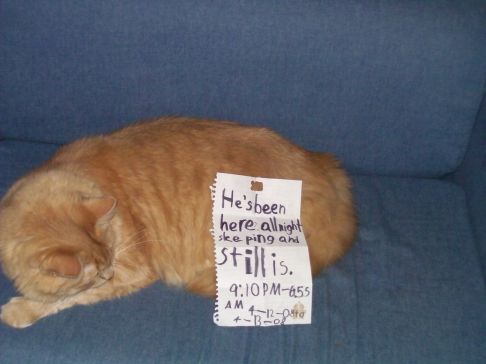 He's been
here all night
sleeping and
still is.
9:10 PM-6:55
AM 4-12-08 to
4-13-08